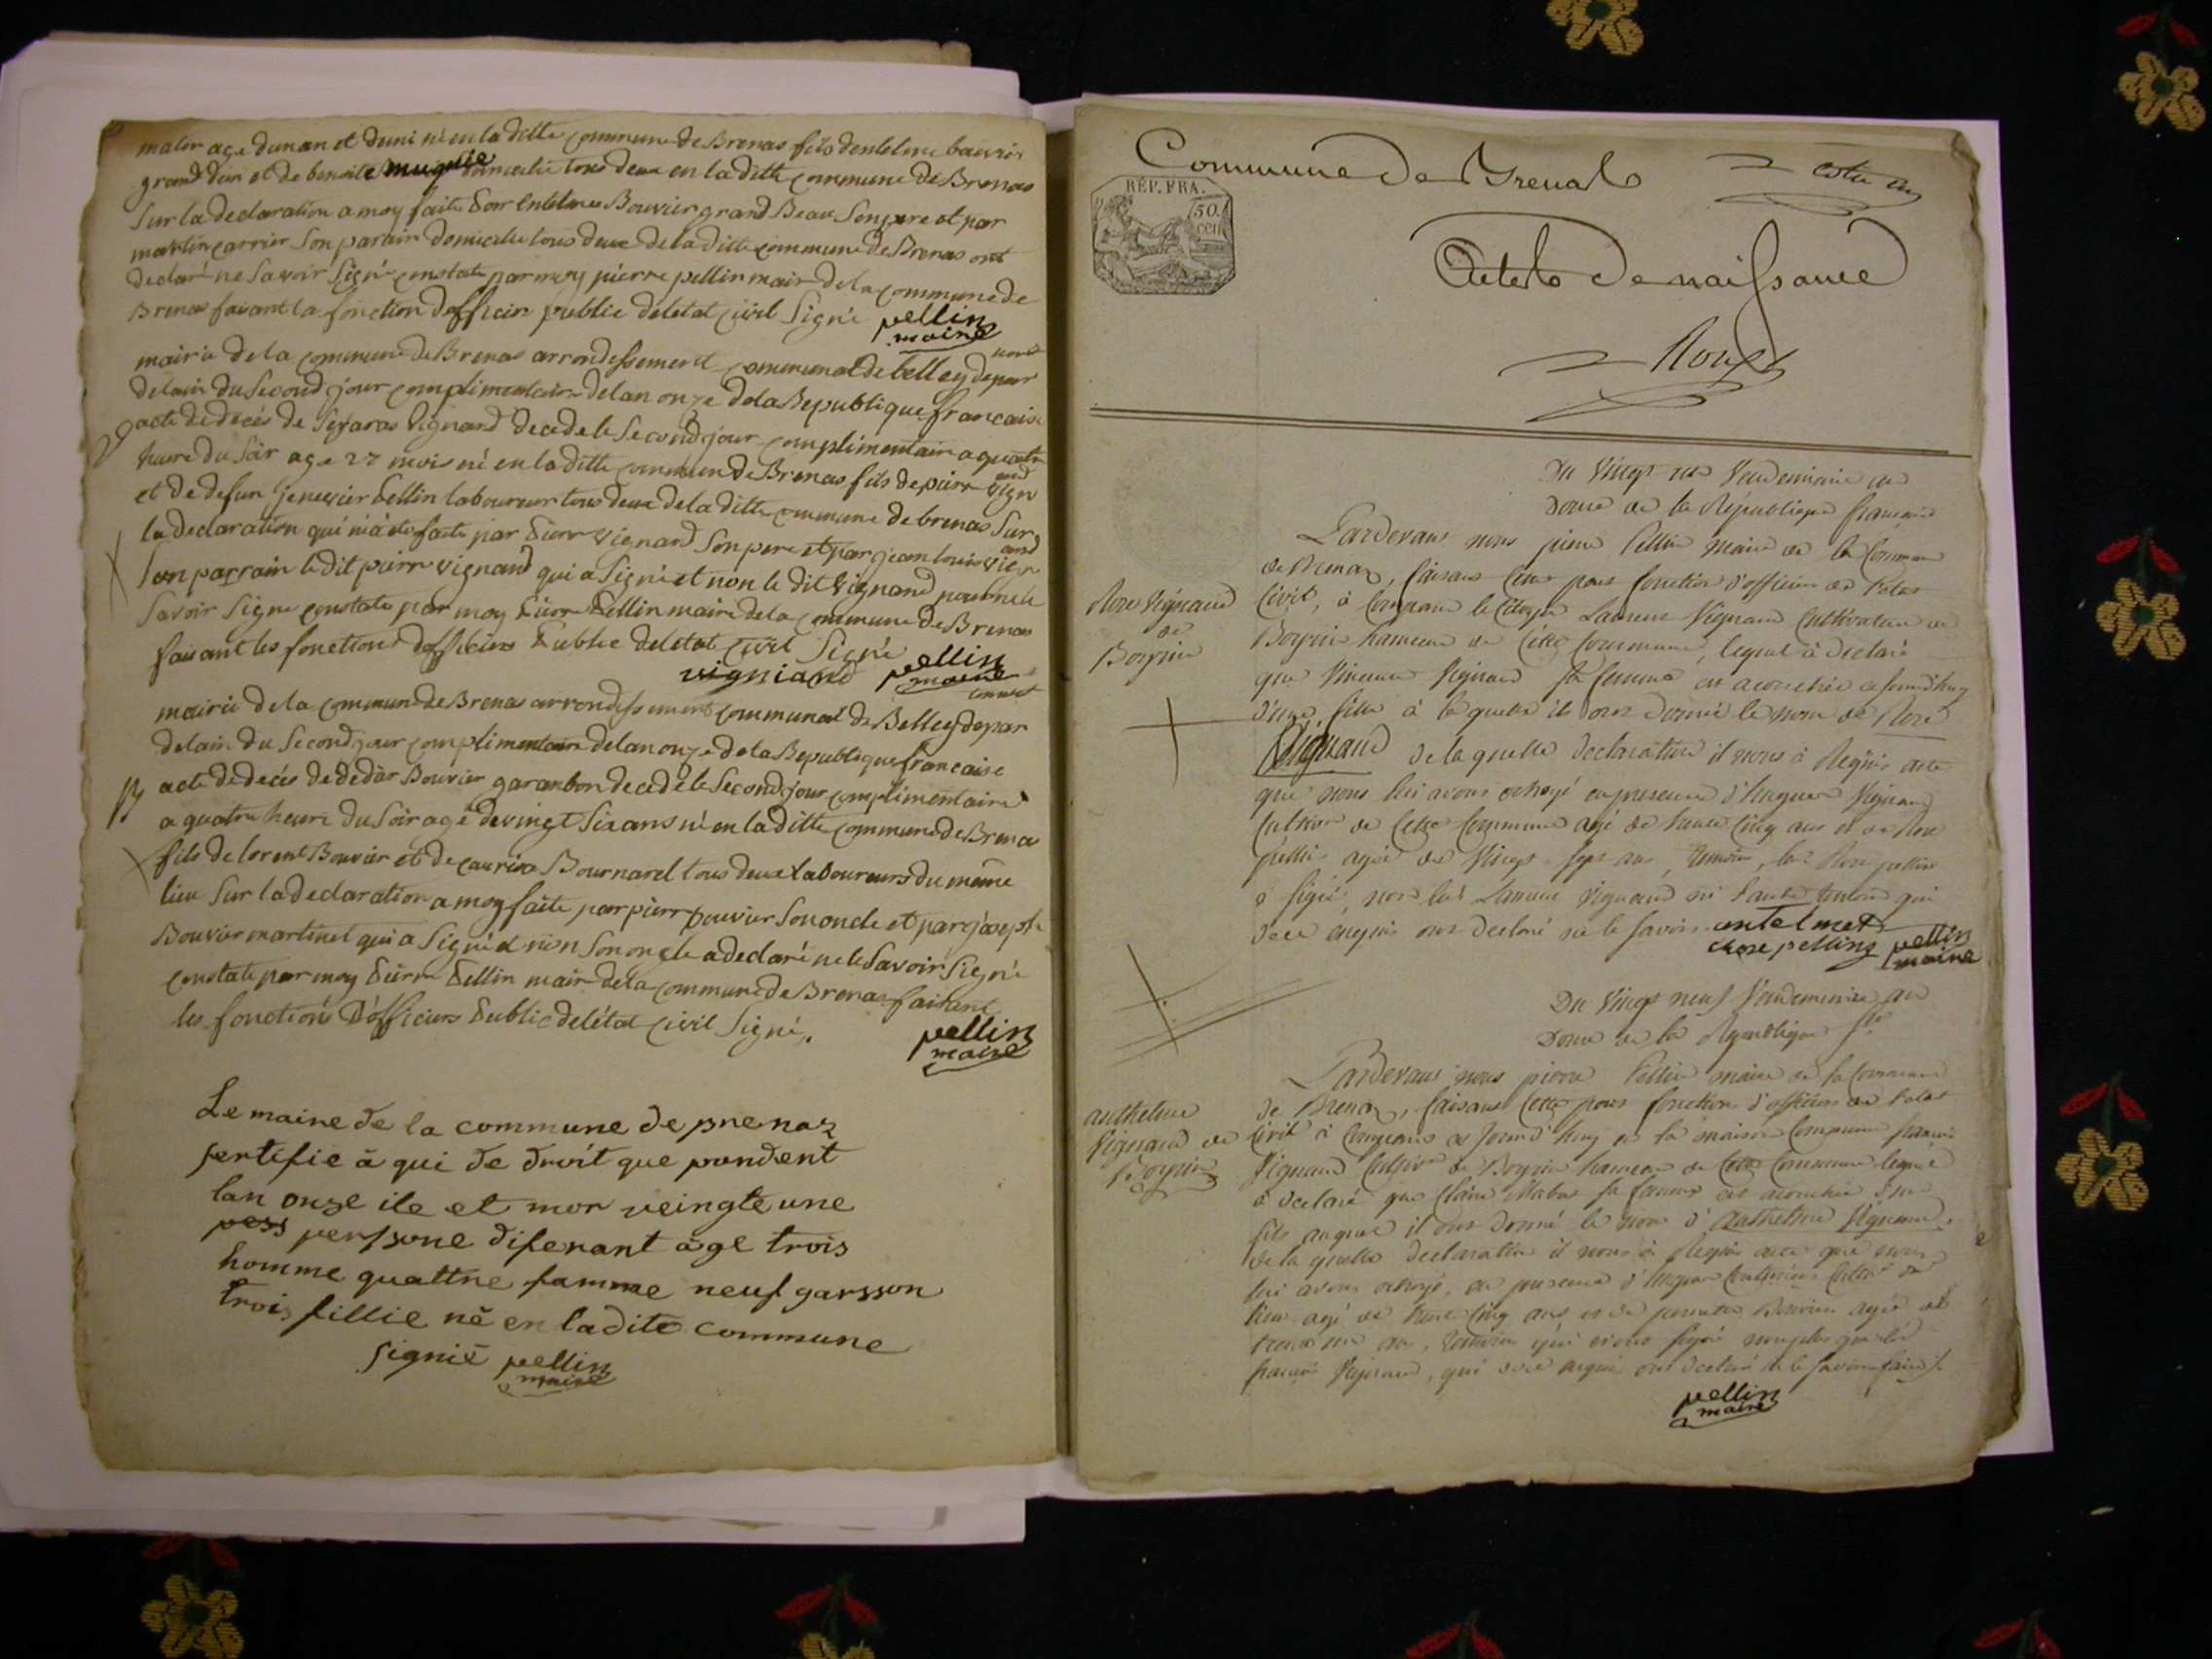 mater age dunan et dumi né en la ditte commune de Brenas fils dentelme bouvier
grand dien et de benoite mugnie domicilie tous deux en la ditte commune de Brenas
Sur la declaration a moy faite par entelme Bouvier grand Beau Son pere et par
martin carrier Son parain domicilie tous deux de la ditte commune de Brenas ont
declaré ne Savoir Signé constate par moy pierre pellin mair de la commune de
Brenas faisant la fonction dofficier public deletat civil Signé pellin
maire
mairie de la commune de Brenas arrondessement communal de belley depar
delain du Second jour complimentaire delan onze dela Republique francaise
acte de decés de Vignand decede le Second jour complimentaire a quatre
heure du Soir age 27 mois né en la ditte commune de Brenas fils de pierre vign
and
et de defun jenevier pellin laboureur tous deux de la ditte commune de brenas Sur
la declaration qui m'a ete faite par pierre vignand Son pere et par jean louis vign
and
Son parrain le dit pierre vignand qui a Signé et non le dit vignand pour ne le
Savoir Signe constate par moy pierre pellin maire de la commune de Brenas
faisant les fonctions dofficiers public deletat civil Signé
vigniand pellin
maire
mairie de la commune de Brenas arrondissement communal de Belley depar
delain du Second jour complimentaire delan onze dela Republique francaise
acte de decés de Bouvier garanbon decedé le Second jour complimentaire
a quatre heure du Soir age de vingt Six ans né en la ditte commune de Brenas
fils de lorent Bouvier et de Bournarel tous deux laboureurs du même
lieu Sur la declaration a moy faite par pierre bouvier Son oncle et par joseph
Bouvier martinet qui a Signé et non Son oncle a declaré ne le Savoir Signé
constate par moy pierre pellin mair de la commune de Brenas faisant
les fonctions D'officiers public deletat civil Signé
pellin
maire
Le maire de la commune de prenaz
sertifie à qui de droit que pandent
lan onze ile et mor veingte une
pess perssone diferant âge trois
homme quattre famme neuf garsson
trois fillie né en ladite commune
signié pellin
maire
Commune de Brenas
RÉP. FRA.
50.
cen
Actes de naissance
Du Vingt un Vendemiaire an
Douze de la République française
Pardevant nous pierre Pellin maire de la Commune
de Brenaz, faisant cette pour fonction d'officier de l'état
Rose Vignand
de
Boyrin
Civil, à Comparu le Citoyen Laurent Vignand Cultivateur de
Boyrin hameau de cette Commune, lequel à declaré
que Vignand Sa femme est acouchée ce jourd'huy
d'une fille à laquelle ils ont donné le nom de Rose
Vignand de laquelle declaration il nous à Requis acte
que nous lui avons octroyé en presence d'hugues Vignand
de cette Commune agé de trente Cinq ans et de Rose
Pellin agée de Vingt-Sept ans, temoins, lad. Rose pellin
à signé, non led. Laurent Vignand ni l'autre temoin qui
de ce enquis ont declaré ne le Savoir. entelmet
rose pelling pellin
maire
Du Vingt neuf Vendemiaire an
Douze de la Republique
Pardevant nous pierre Pellin maire de la Commune
anthelme
Vignand de
Boyrin
de Brenaz, faisant cette pour fonction d'officier de l'état
Civil à Comparu ce jourd'huy en la maison Commune françois
Vignand de Boyrin hameau de cette Commune lequel
à declaré que Claire Sa femme est acouchée d'un
fils auquel il ont donné le nom d'Anthelme Vignand,
de laquelle declaration il nous à Requis acte que nous
lui avons octroyé, en presence d'hugues
lieu agé de trente Cinq ans et de Bouvier agée de
ans, temoins qui n'ont signé non plus que led.
françois Vignand, qui de ce requis ont declaré ne le Savoir faire
pellin
maire